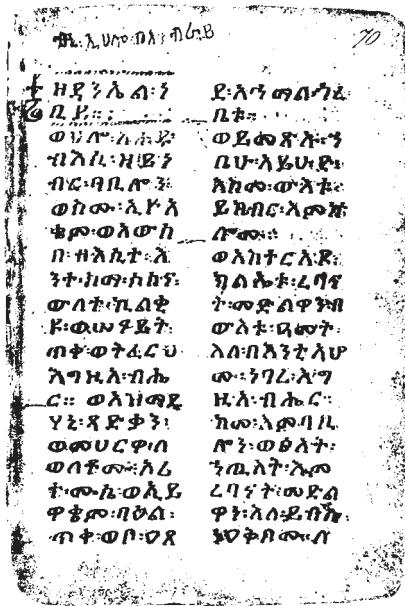 70
ዘዳንኤል፡ነ
ቢይ።
ወሀሎ፡አሐዱ፡
ብእሲ፡ዘይነ
ብር፡ባቢሎን፡
ወስሙ፡ኢዮአ
ቄም፡ወአውስ
በ፡ብእሲተ፡እ
ንተ፡ስማ፡ሶስና፡
ወለተ፡ኬልቂ
ዩ፡ወሠናይት፡
ጥቀ፡ወትፈርህ
እግዚአ፡ብሔ
ር። ወአዝማዲ
ሃኒ፡ጻድቃን፡
ወመሀርዋ፡ለ
ወለቶሙ፡ኦሪ
ተ፡ሙሴ፡ወኢዮ
ዋቄም፡ባዕል፡
ጥቀ፡ወቦ፡ዐጸ
ደ፡
ቤቱ።
ወይመጽኡ፡ኀ
ቤሁ፡አይሁድ፡
እስመ፡ውእቱ፡
ይከብር፡እምኵ
ሎሙ።
ወአስተርአዩ፡
ካልኤቱ፡ረበና
ት፡መድልዋን፡በ
ውእቱ፡ዓመት፡
እለ፡በእንቲአሆ
ሙ፡ነገረ፡እግ
ዚአ፡ብሔር።
ከመ፡እምባቢ
ሎን፡ወፅአት፡
ኀጢአት፡እም
ረበናት፡መድል
ዋን፡እለ፡ይብሉ፡
ነዐቅቦሙ፡ለ